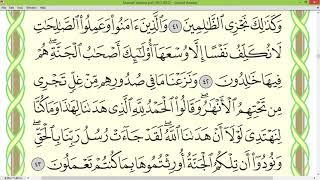 وَكَذَٰلِكَ نَجْزِى ٱلظَّٰلِمِينَ ٤١ وَٱلَّذِينَ ءَامَنُوا۟ وَعَمِلُوا۟ ٱلصَّٰلِحَٰتِ
لَا نُكَلِّفُ نَفْسًا إِلَّا وُسْعَهَآ أُو۟لَٰٓئِكَ أَصْحَٰبُ ٱلْجَنَّةِ ۖ هُمْ
فِيهَا خَٰلِدُونَ ٤٢ وَنَزَعْنَا مَا فِى صُدُورِهِم مِّنْ غِلٍّ تَجْرِى
مِن تَحْتِهِمُ ٱلْأَنْهَٰرُ ۖ وَقَالُوا۟ ٱلْحَمْدُ لِلَّهِ ٱلَّذِى هَدَىٰنَا لِهَٰذَا وَمَا كُنَّا
لِنَهْتَدِىَ لَوْلَآ أَنْ هَدَىٰنَا ٱللَّهُ ۖ لَقَدْ جَآءَتْ رُسُلُ رَبِّنَا بِٱلْحَقِّ ۖ
وَنُودُوٓا۟ أَن تِلْكُمُ ٱلْجَنَّةُ أُورِثْتُمُوهَا بِمَا كُنتُمْ تَعْمَلُونَ ٤٣